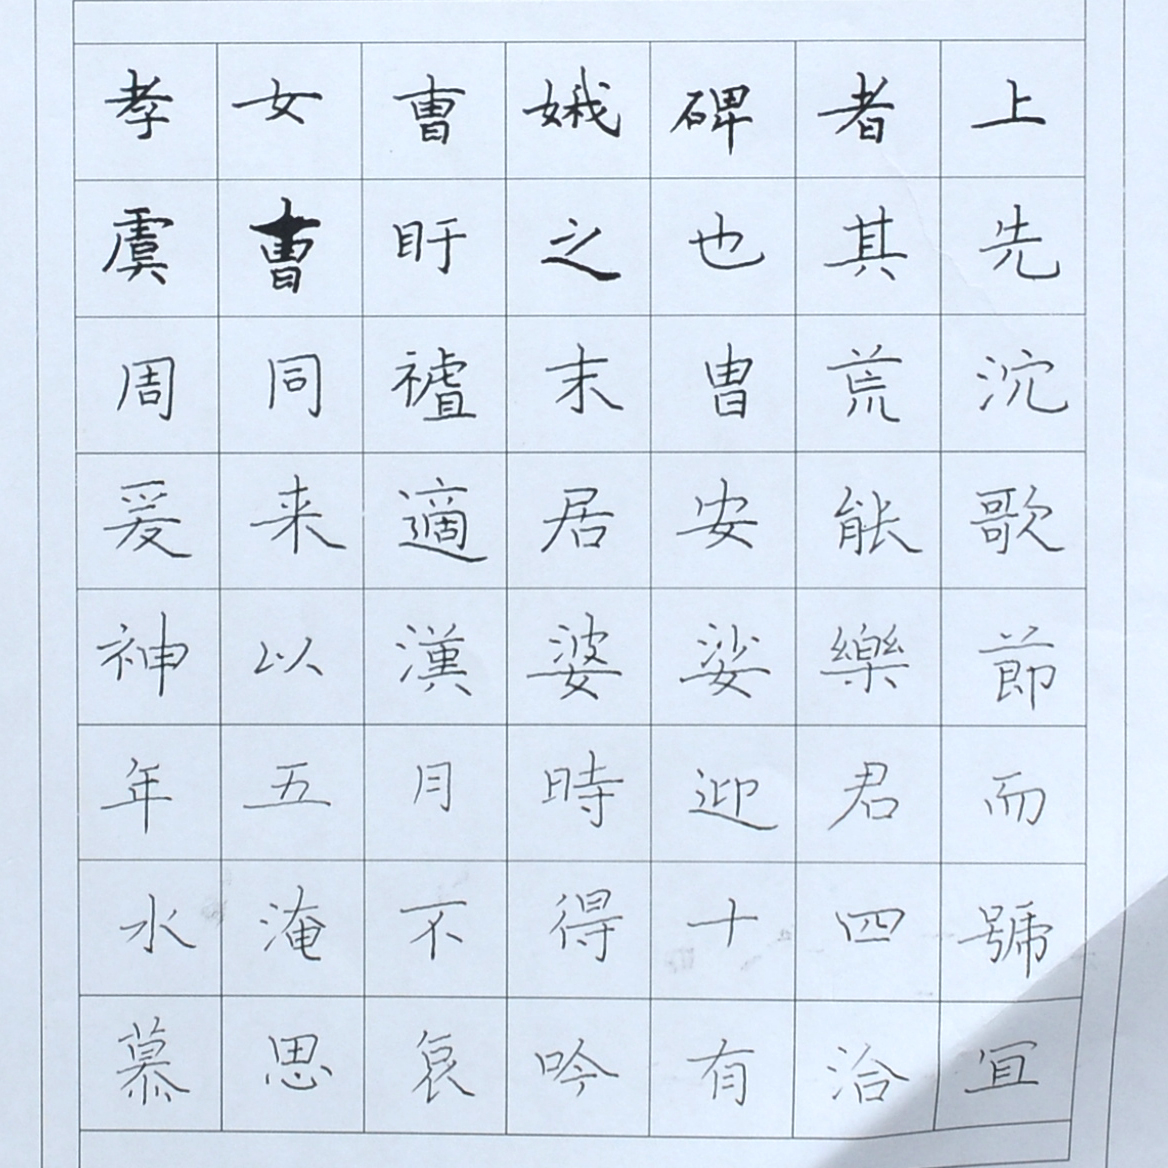 孝女曹娥碑者上
虞曹盱之也其先
周同祖末胄荒沈
爰来適居安能歌
神以漢婆娑樂節
年五月時迎君而
水淹不得十四號
慕思哀吟有洽冝